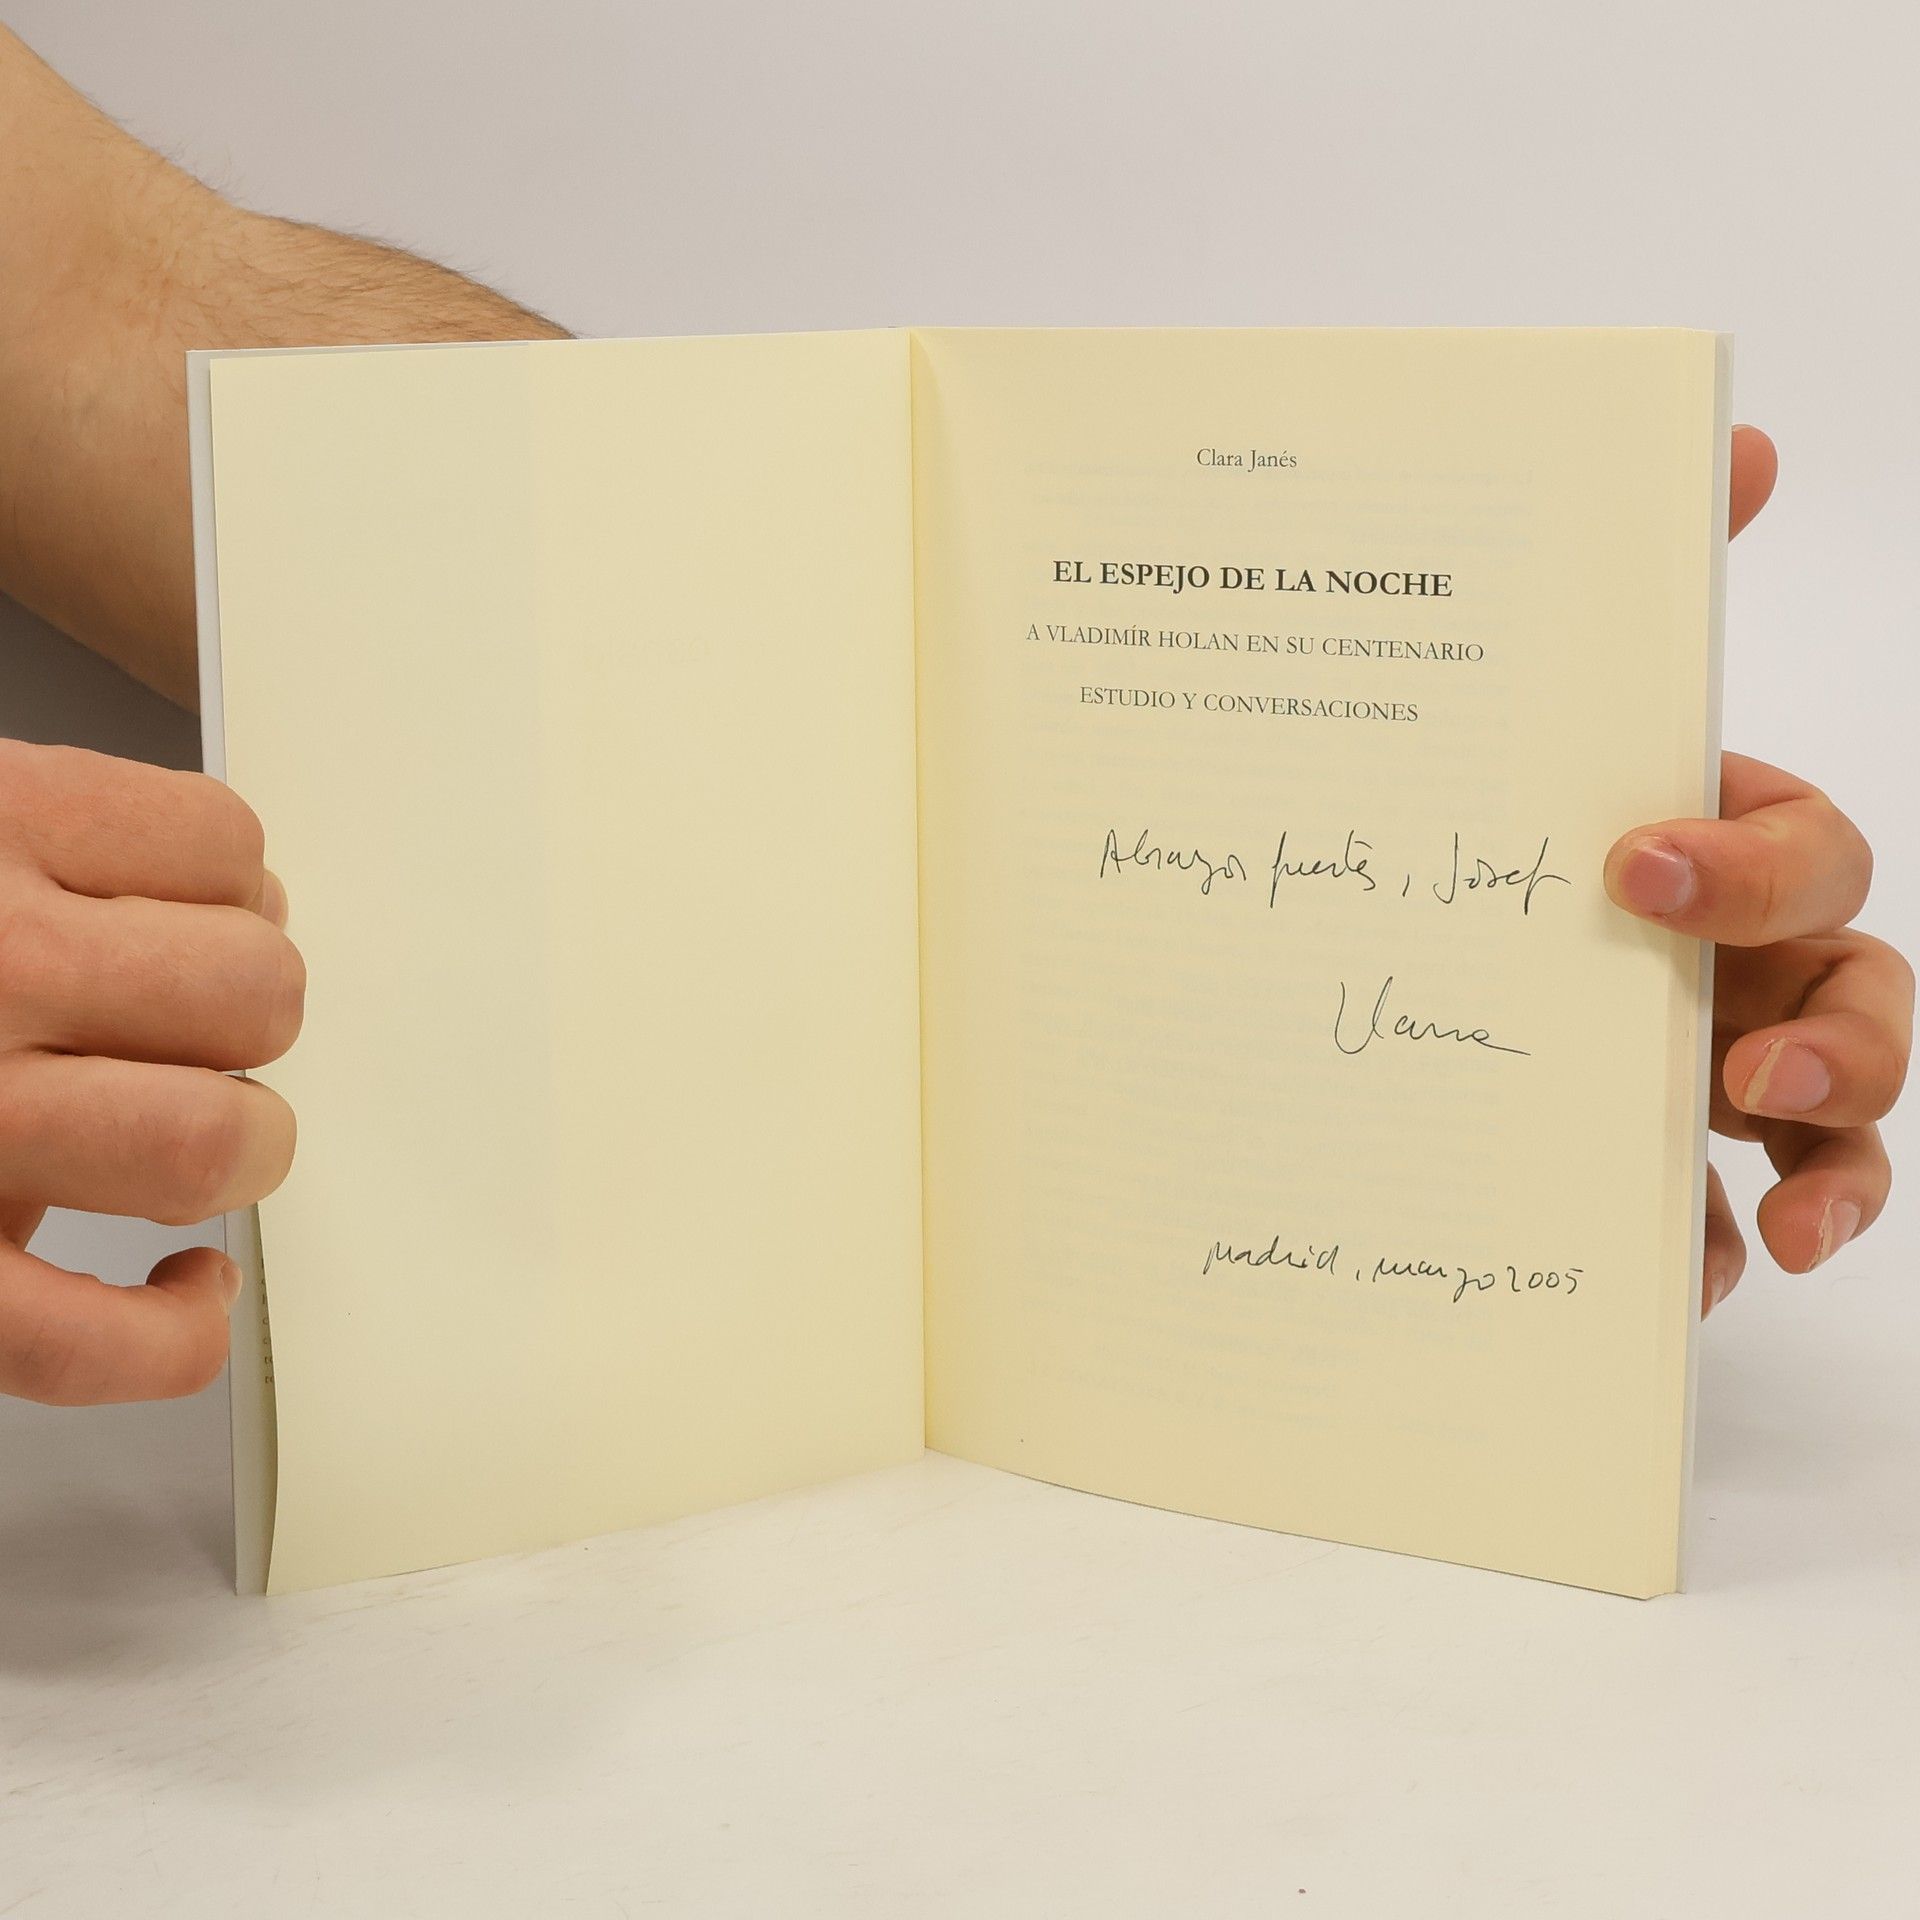 Clara Janés
EL ESPEJO DE LA NOCHE
A VLADIMÍR HOLAN EN SU CENTENARIO
ESTUDIO Y CONVERSACIONES
Abrazos fuertes, Josef
Clara
Madrid, marzo 2005